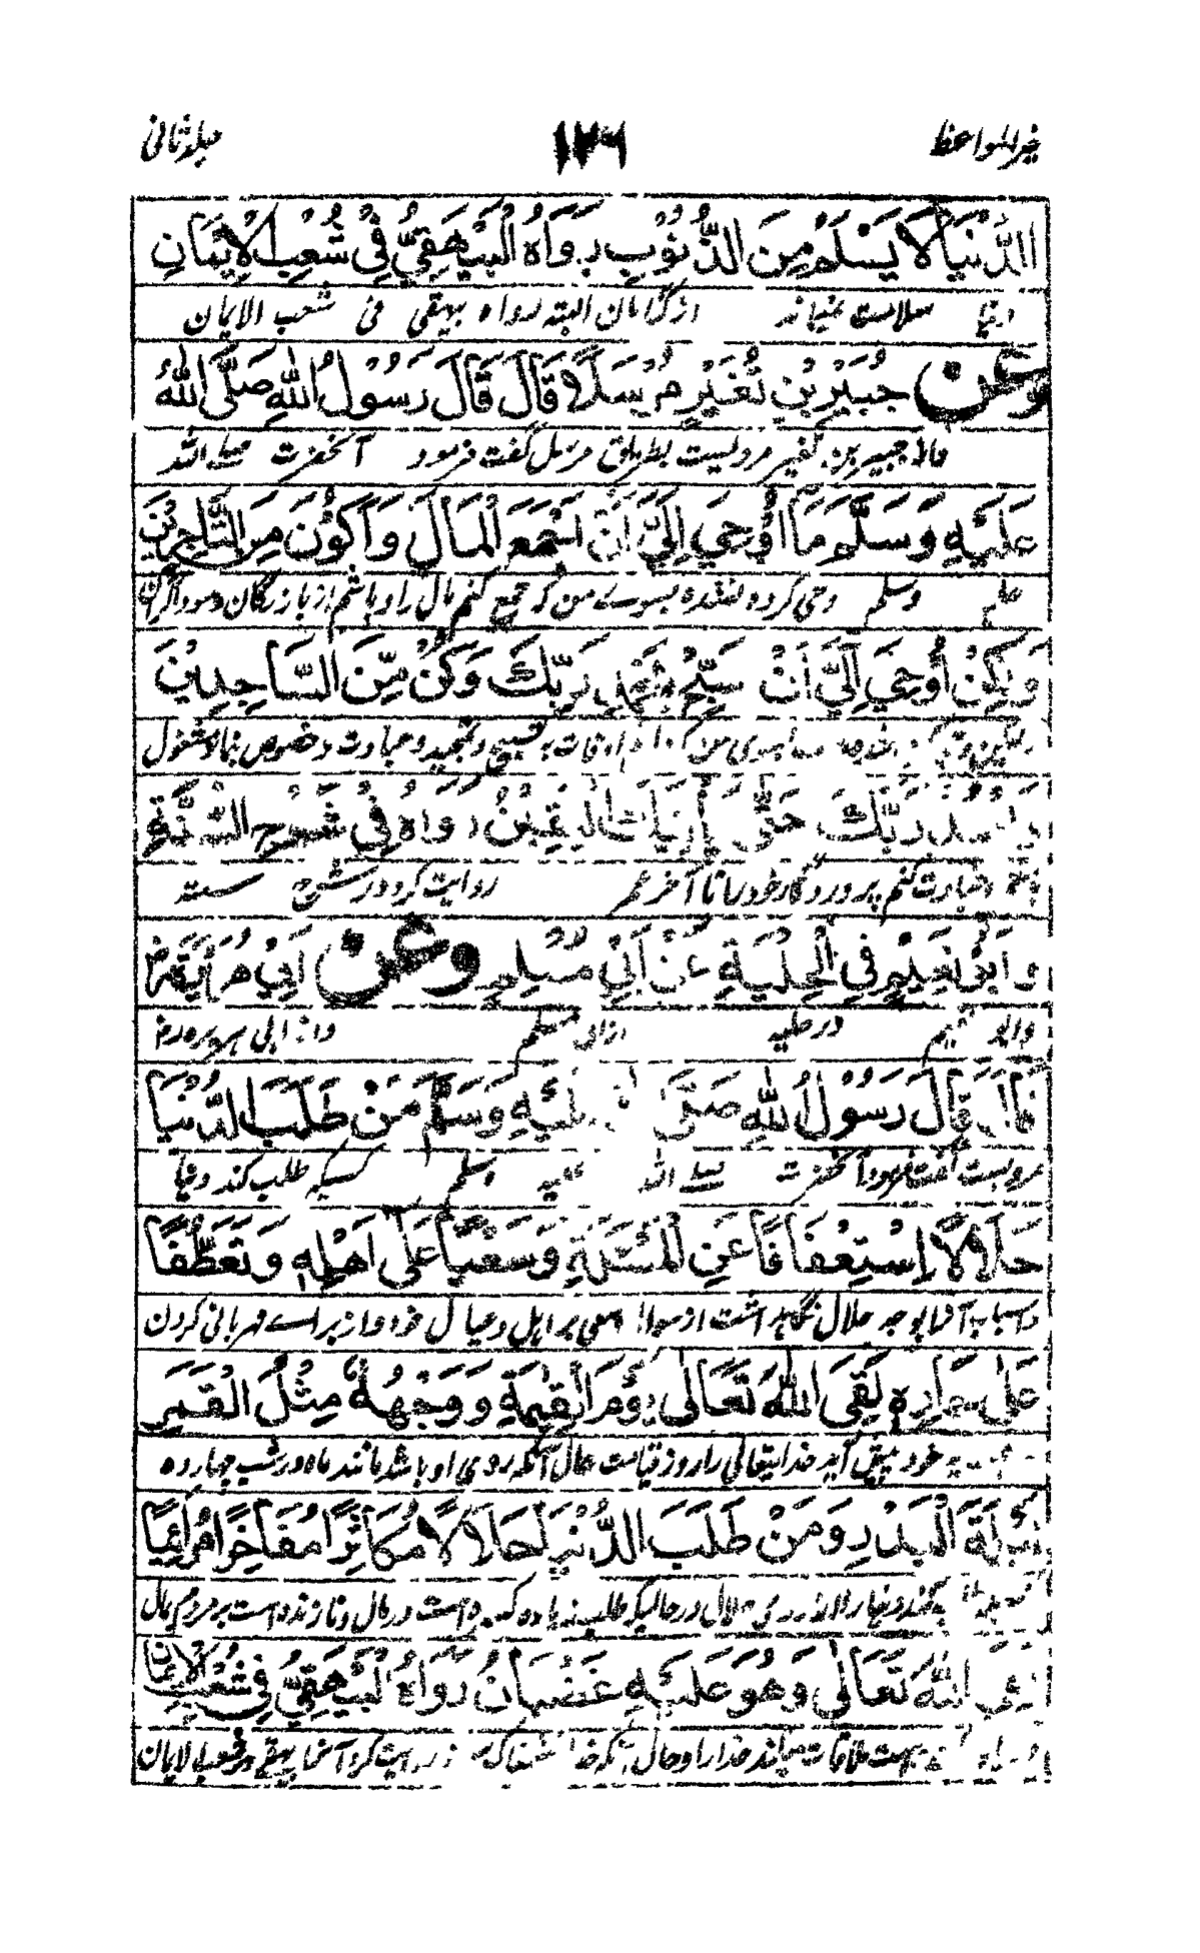 خیر المواعظ ۱۲۶ جلد ثانی
الدُّنْيَا لَا يَسْلَمُ مِنَ الذُّنُوْبِ رَوَاهُ الْبَيْهَقِيُّ فِيْ شُعَبِ الْاِيْمَانِ
دنیا سلامت نمیماند از گناہان البتہ رواہ بیہقی فی شعب الایمان
وَعَنْ جُبَيْرِ بْنِ نُفَيْرٍ مُرْسَلًا قَالَ قَالَ رَسُوْلُ اللهِ صَلَّى اللهُ
جبیر بن نفیر مرویست بطریق مرسل گفت فرمود آنحضرت صلے اللہ
عَلَيْهِ وَسَلَّمَ مَا اُوْحِيَ اِلَيَّ اَنْ اَجْمَعَ الْمَالَ وَاَكُوْنَ مِنَ التَّاجِرِيْنَ
علیہ وسلم وحی کردہ نشدہ بسوے من کہ جمع کنم مال را و باشم از بازرگان و سوداگران
وَلٰكِنْ اُوْحِيَ اِلَيَّ اَنْ سَبِّحْ بِحَمْدِ رَبِّكَ وَكُنْ مِّنَ السَّاجِدِيْنَ
بسوی من کہ اوقات بہ تسبیح و تحمید و عبادت و خصوص نماز مشغول
وَاعْبُدْ رَبَّكَ حَتّٰى يَاْتِيَكَ الْيَقِيْنُ رَوَاهُ فِيْ شَرْحِ السُّنَّةِ
باشم و عبادت کنم پروردگار خود را تا آخر عمر روایت کرد در شرح سنہ
وَاَبُوْ نُعَيْمٍ فِي الْحِلْيَةِ عَنْ اَبِيْ مُسْلِمٍ وَعَنْ اَبِيْ هُرَيْرَةَ
وابو نعیم در حلیہ از ابی مسلم و از ابی ہریرہ
قَالَ قَالَ رَسُوْلُ اللهِ صَلَّى عَلَيْهِ وَسَلَّمَ مَنْ طَلَبَ الدُّنْيَا
مرویست گفت فرمود آنحضرت صلے اللہ علیہ وسلم کسیکہ طلب کند دنیا
حَلَالًا اِسْتِعْفَافًا عَنِ الْمَسْئَلَةِ وَسَعْيًا عَلٰى اَهْلِهٖ وَتَعَطُّفًا
و اسباب آنرا بوجہ حلال نگاہداشت از سوال و سعی بر اہل و عیال خود و از براے مہربانی کردن
عَلٰى جَارِهٖ لَقِيَ اللهَ تَعَالٰى يَوْمَ الْقِيٰمَةِ وَوَجْهُهٗ مِثْلُ الْقَمَرِ
خود پیش آید خدایتعالی را روز قیامت و حال آنکہ روی او باشد مانند ماہ در شب چہاردہ
لَيْلَةَ الْبَدْرِ وَمَنْ طَلَبَ الدُّنْيَا حَلَالًا مُكَاثِرًا مُفَاخِرًا مُرَائِيًا
دنیا را از روی حلال در حالیکہ طلب زیادہ کنندہ است در مال و نازندہ است بر مردم بمال
لَقِيَ اللهَ تَعَالٰى وَهُوَ عَلَيْهِ غَضْبَانُ رَوَاهُ الْبَيْهَقِيُّ فِيْ شُعَبِ الْاِيْمَانِ
است ملاقات میکند خدا را و حال آنکہ خدا خشمناک روایت کرد آنرا بیہقی در شعب الایمان